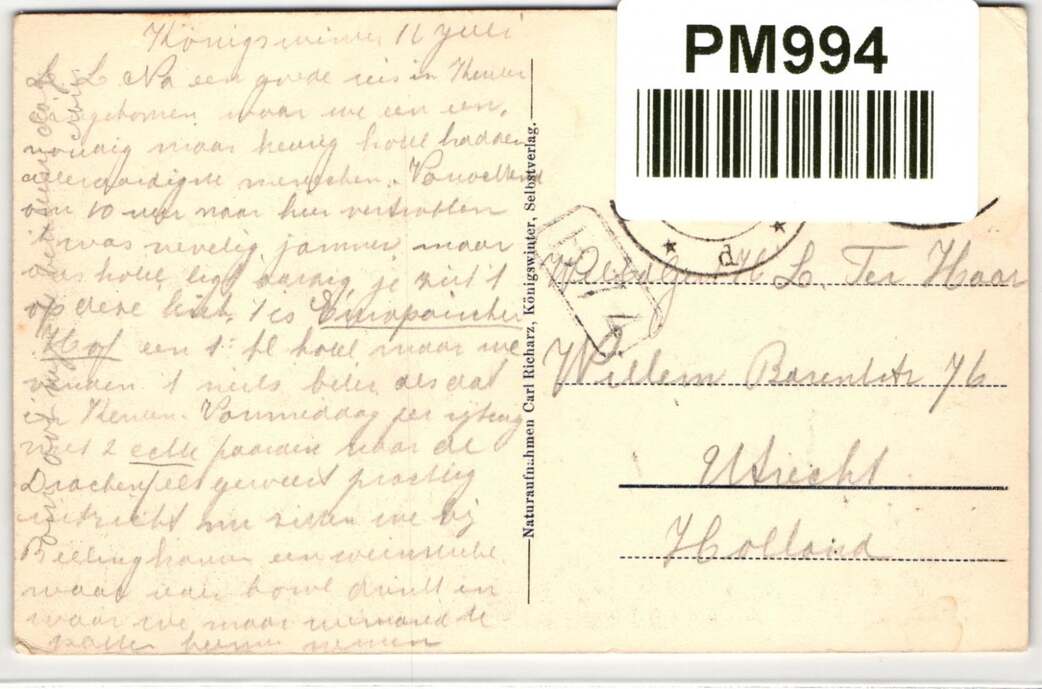 Königswinter 11 Juli
L. L. Na een goede reis in Keulen
aangekomen waar we een een-
voudig maar keurig hotel hadden
alleraardigste menschen. Vanochtend
om 10 uur naar hier vertrokken
't was nevelig jammer maar
ons hotel ligt aardig, je ziet 't
op deze kaart, 't is Europäischer
Hof een 1e kl hotel maar we
vinden 't niets beter als dat
in Keulen. Vanmiddag per rijtuig
met 2 echte paarden naar de
Drachenfels geweest prachtig
uitzicht nu zitten we bij
een weinstube
waar ieder bowl drinkt en
waar we maar
nemen
Naturaufnahmen Carl Richarz, Königswinter, Selbstverlag.
PM994
d
H. L. Ter Haar
Willem Barentstr 76
Utrecht
Holland